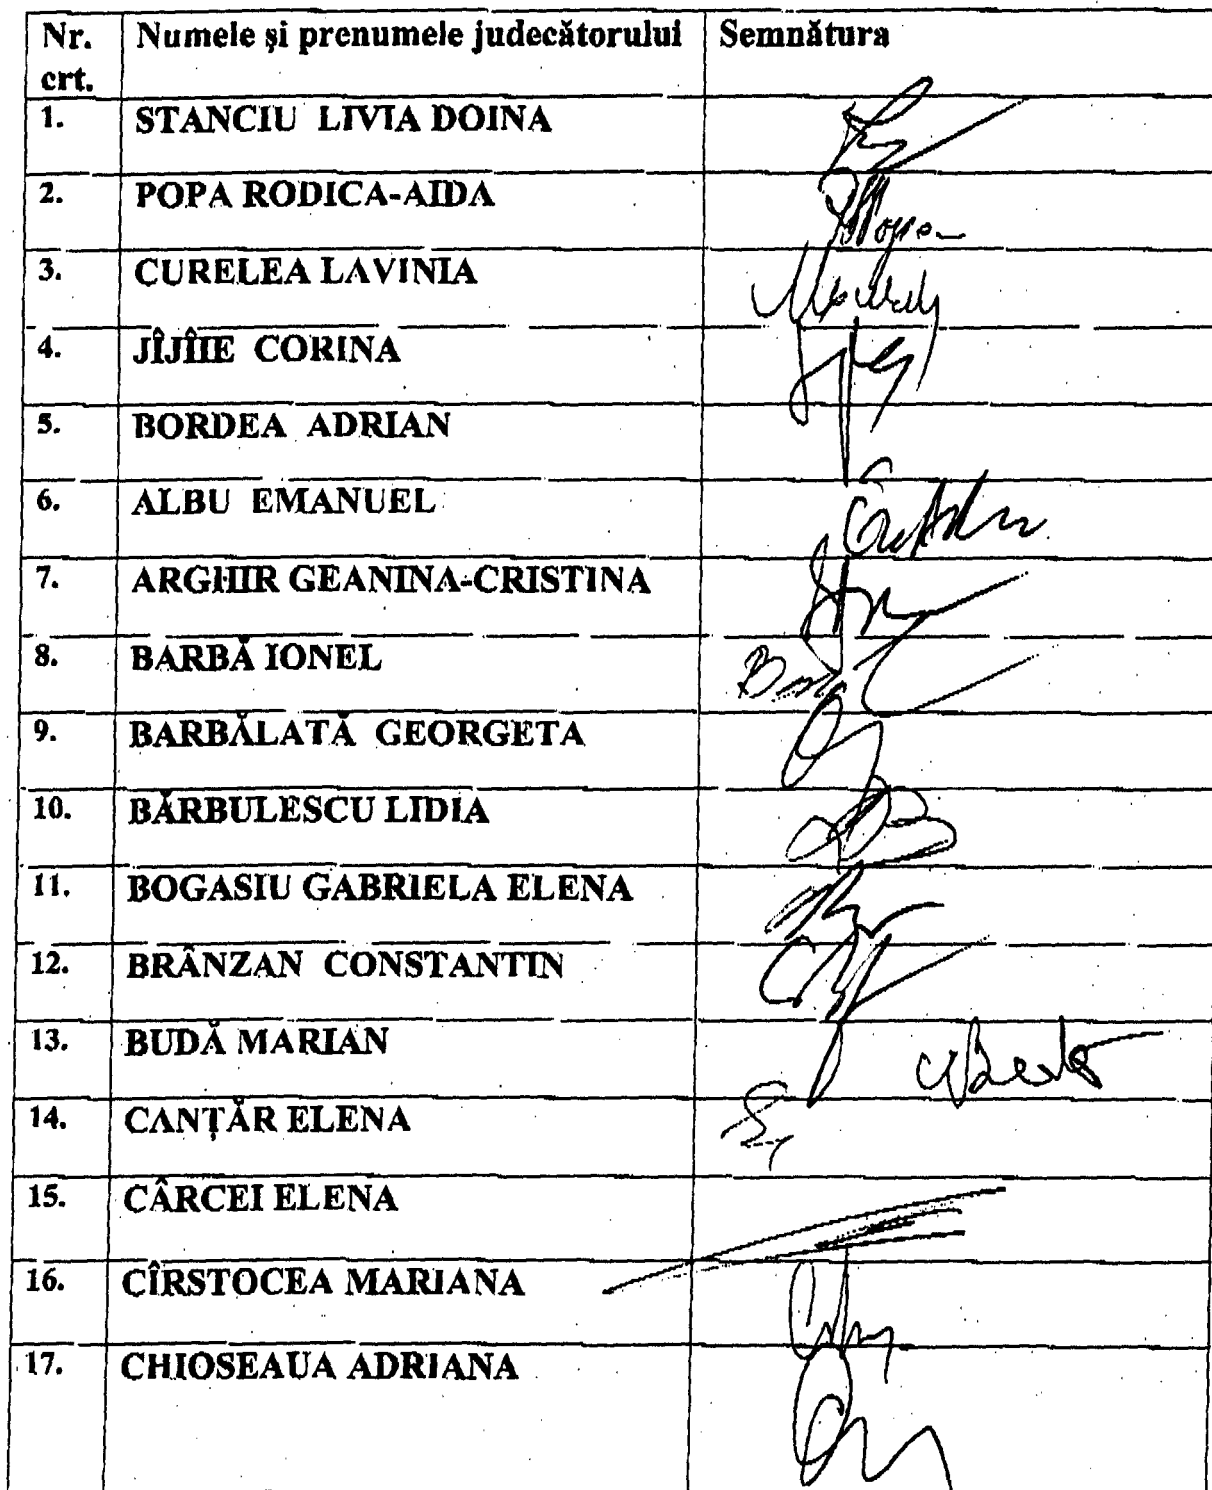 Nr. Numele și prenumele judecătorului Semnătura
crt.
1. STANCIU LIVIA DOINA
2. POPA RODICA-AIDA
3. CURELEA LAVINIA
4. JÎJÎIE CORINA
5. BORDEA ADRIAN
6. ALBU EMANUEL
7. ARGHIR GEANINA-CRISTINA
8. BARBĂ IONEL
9. BARBĂLATĂ GEORGETA
10. BĂRBULESCU LIDIA
11. BOGASIU GABRIELA ELENA
12. BRÂNZAN CONSTANTIN
13. BUDĂ MARIAN
14. CANȚĂR ELENA
15. CÂRCEI ELENA
16. CÎRSTOCEA MARIANA
17. CHIOSEAUA ADRIANA